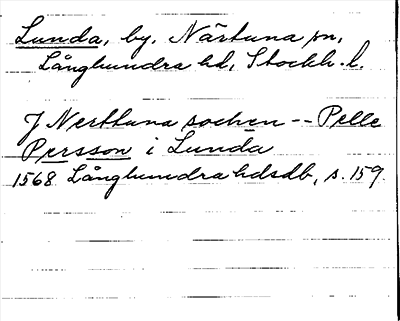 Lunda, by, Närtuna sn,
Långhundra hd, Stockh. l.
J Nerttuna sochen -- Pelle
Persson i Lunda
1568 Långhundra hdsdb, s. 159.